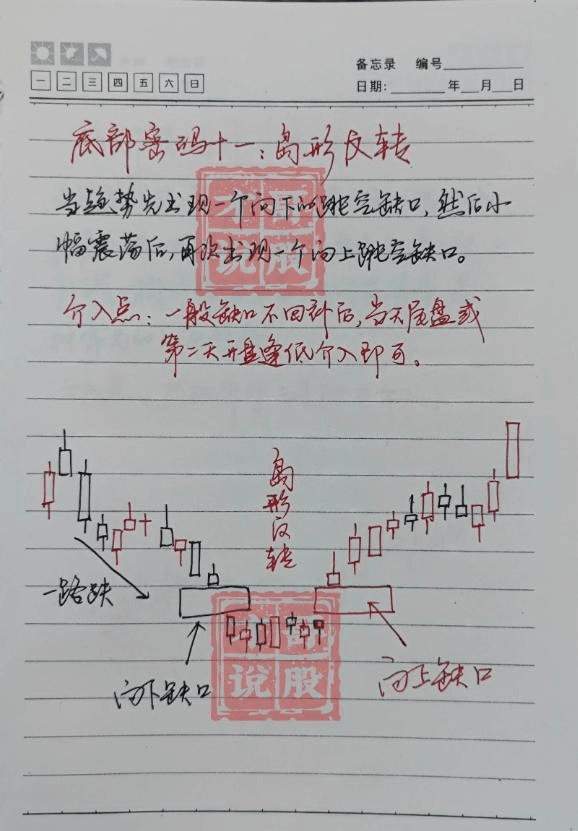 备忘录 编号
一 二 三 四 五 六 日
日期: 年 月 日
底部密码十一:岛形反转
当趋势先出现一个向下的跳空缺口,然后小
幅震荡后,再次出现一个向上跳空缺口。
介入点:一般缺口不回补后,当天尾盘或
第二天开盘逢低介入即可。
岛形反转
一路跌
向下缺口
向上缺口
说股
说股